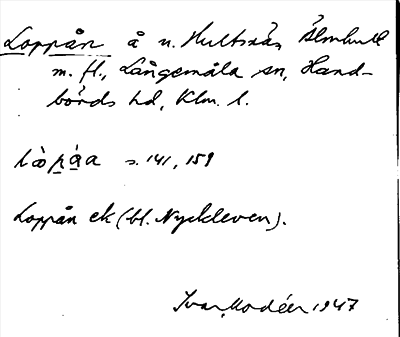 Loppån å n. Hultsnäs Älmhult
m. fl., Långemåla sn, Hand-
börds hd, Klm. l.
lòp̱á̱a s. 141, 159
Loppån ek (bl. Nyckleven).
Ivar Modéer 1947